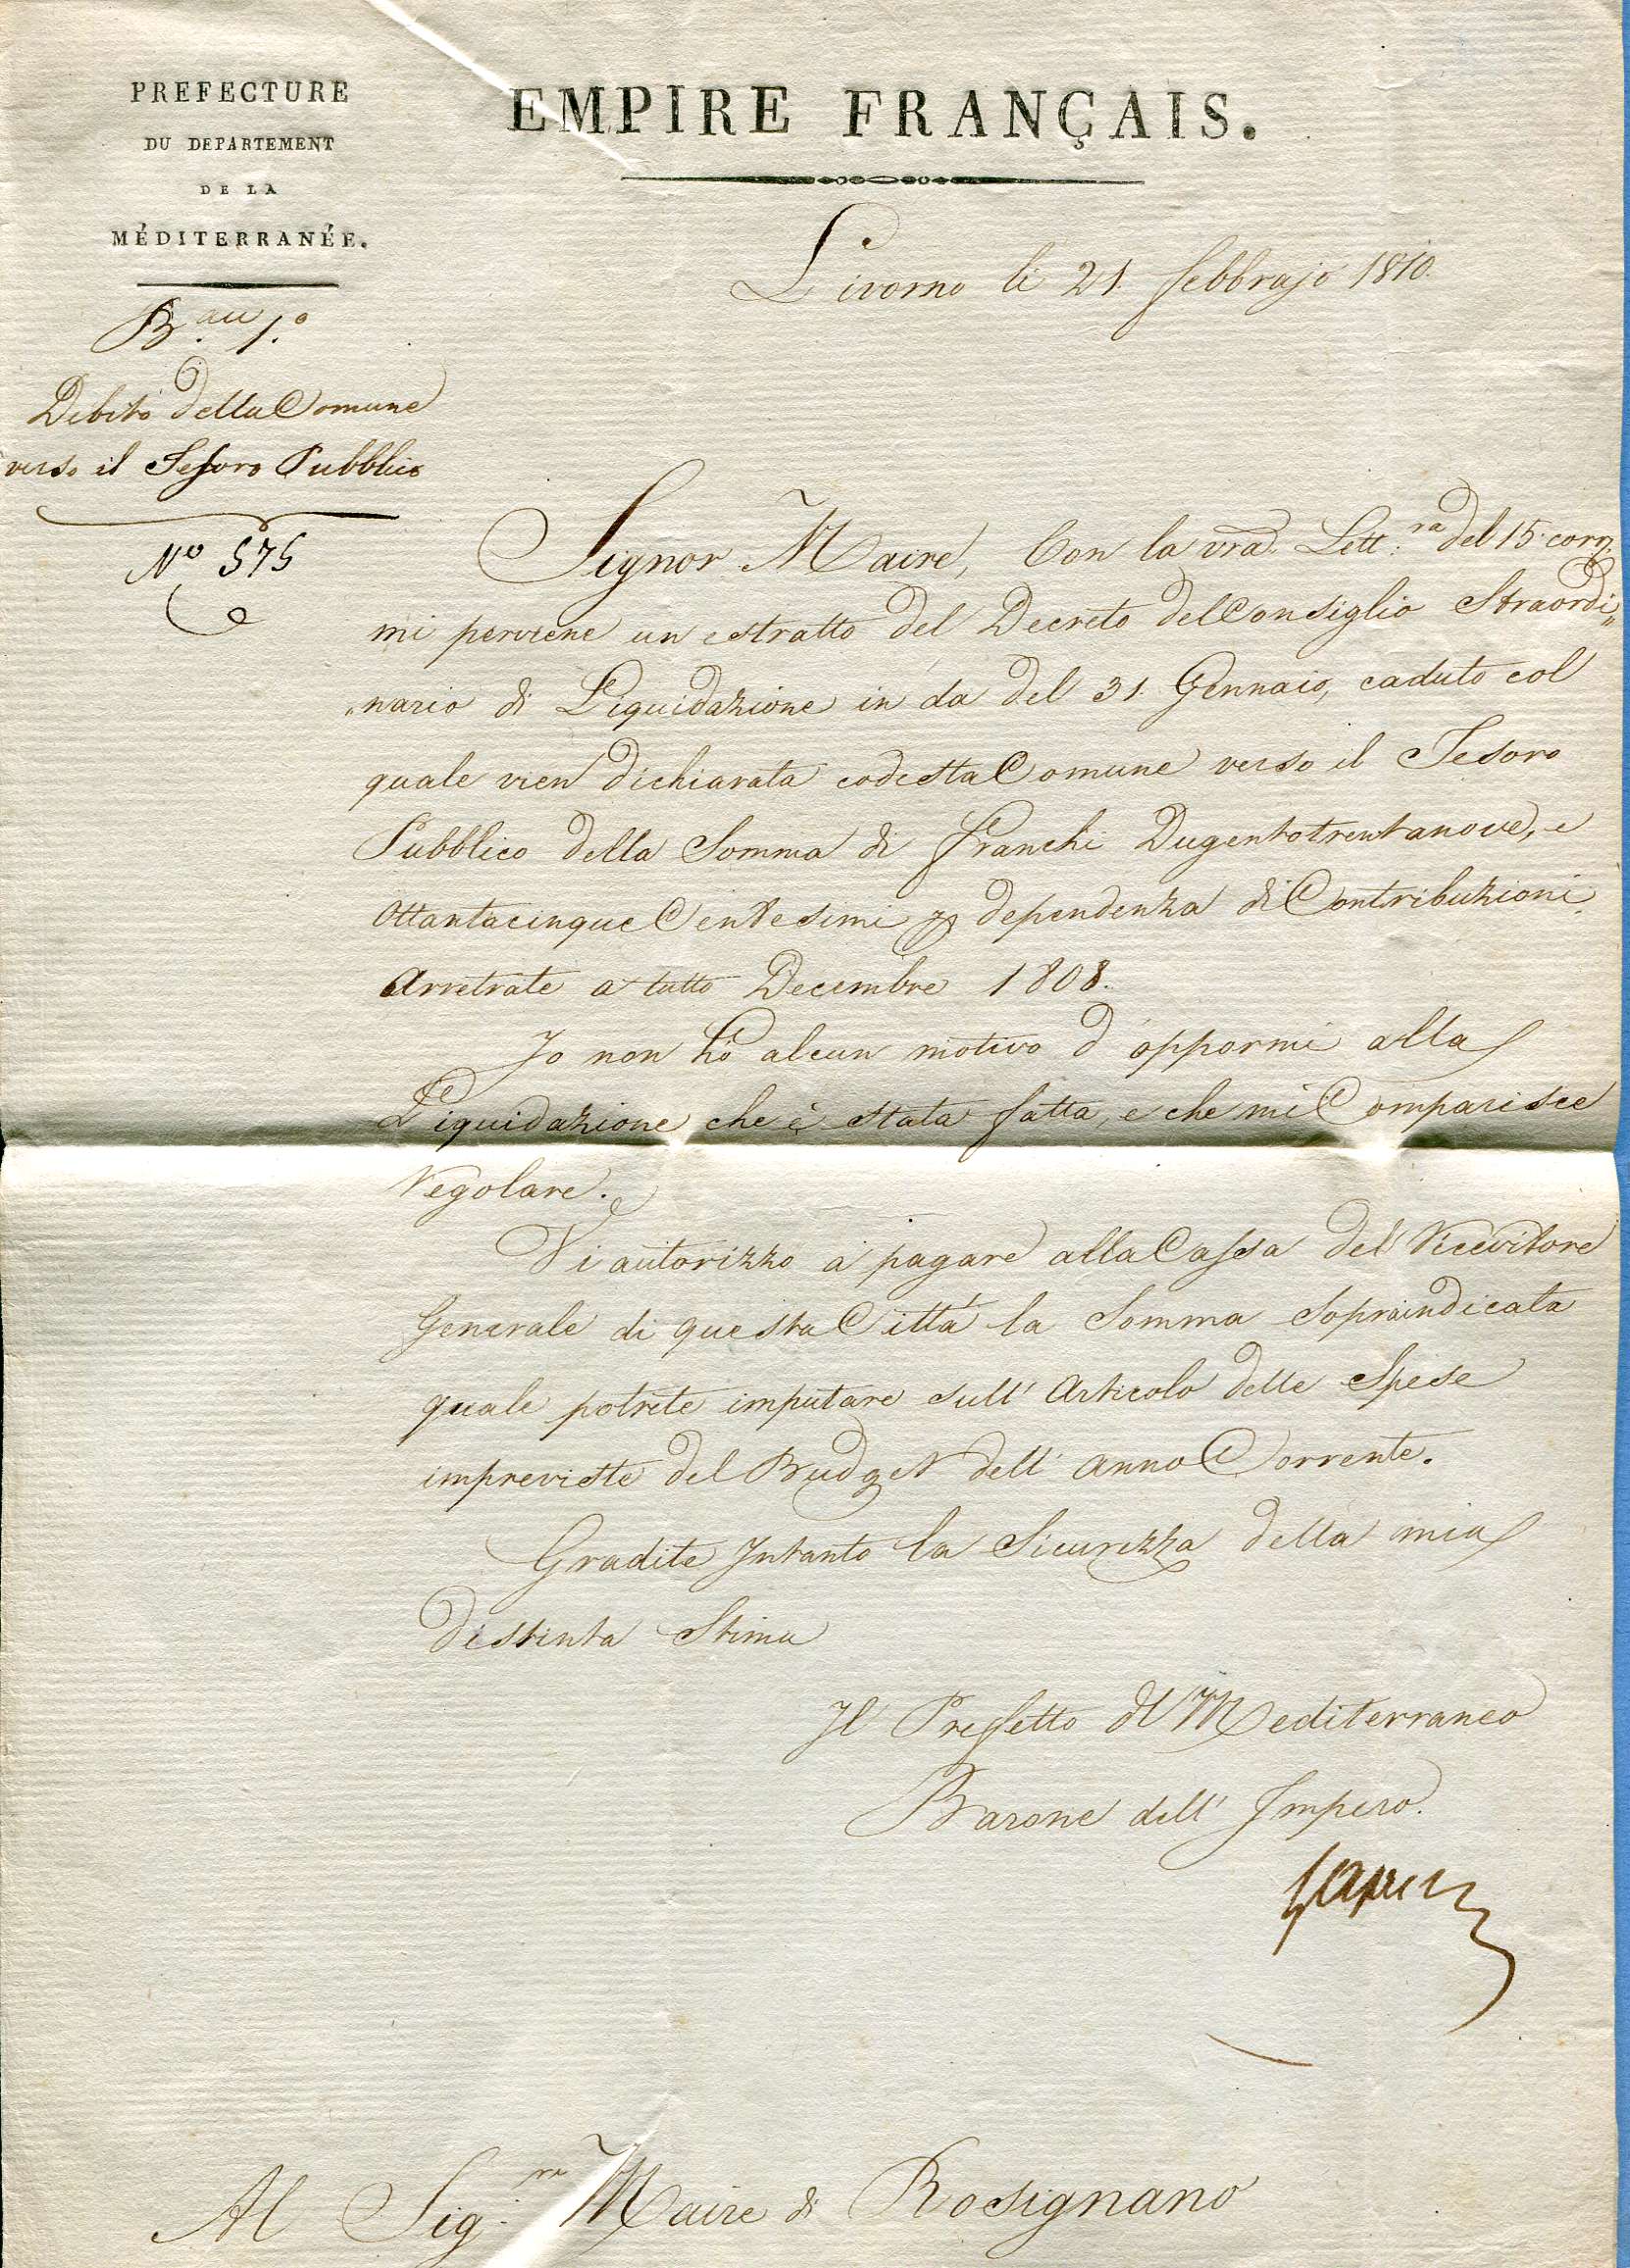 PREFECTURE
DU DEPARTEMENT
DE LA
MÉDITERRANÉE.
EMPIRE FRANÇAIS.
Livorno li 21. febbrajo 1810.
B.au 1.o
Debito della Comune
verso il Tesoro Pubblico
No 575
Signor Maire, Con la vra. Lett:ra del 15. corr.
mi perviene un estratto del Decreto del Consiglio Straordi„
„nario di Liquidazione in da del 31. Gennaio, caduto col
quale vien dichiarata codesta Comune verso il Tesoro
Pubblico della Somma di franchi Dugentotrentanove, e
Ottantacinque Centesimi dependenza di Contribuzioni
Arretrate a tutto Decembre 1808.
Io non hò alcun motivo d'oppormi alla
Liquidazione che è stata fatta, e che mi Comparisce
Regolare.
Vi autorizzo a pagare alla Cassa del Ricevitore
Generale di questa Città la Somma sopraindicata
quale potrete imputare sull' Articolo delle Spese
impreviste del Budget dell' anno Corrente.
Gradite Intanto la Sicurezza della mia
distinta Stima
Il Prefetto del Mediterraneo
Barone dell' Impero.
Al Sig.re Maire di Rosignano